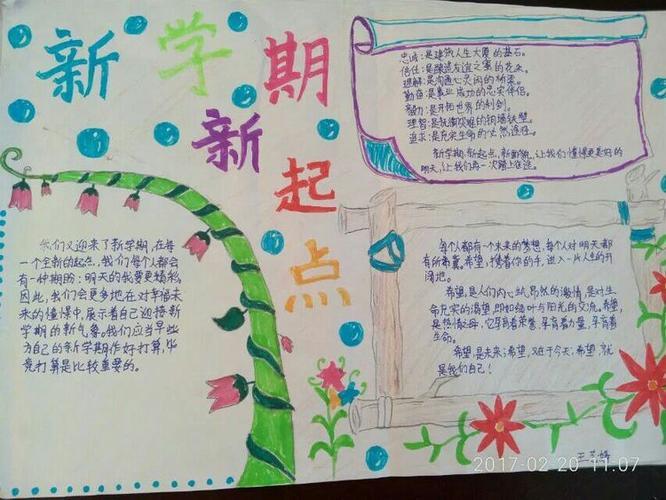 新学期
新起点
忠诚:是建筑人生大厦的基石。
信任:是酿造友谊之蜜的花朵。
理解:是沟通心灵间的桥梁。
勤奋:是事业成功的忠实伴侣。
毅力:是开拓世界的利剑。
理智:是抵御艰难的铜墙铁壁。
追求:是充实生命的必然途径。
新学期,新起点,新面貌,让我们憧憬更美好的
明天,让我们再一次踏上征途。
我们又迎来了新学期,在每
一个全新的起点,我们每个人都会
有一种期盼:明天的我要更精彩,
因此,我们会更多地在对幸福未
来的憧憬中,展示着自己迎接新
学期的新气象。我们应当早些
为自己的新学期作好打算,毕
竟打算是比较重要的。
每个人都有一个未来的梦想,每个人对明天都
有所希冀。希望,携着你的手,进入一片人生的开
阔地。
希望,是人们内心炕昂然的激情,是对生
命充实的渴望,即如绿叶与阳光的交流。希望,
是热情之母,它孕育着荣誉,孕育着力量,孕育着
生命。
希望,是未来;希望,又在于今天;希望,就
是我们自己!
2017-02-20 11:07